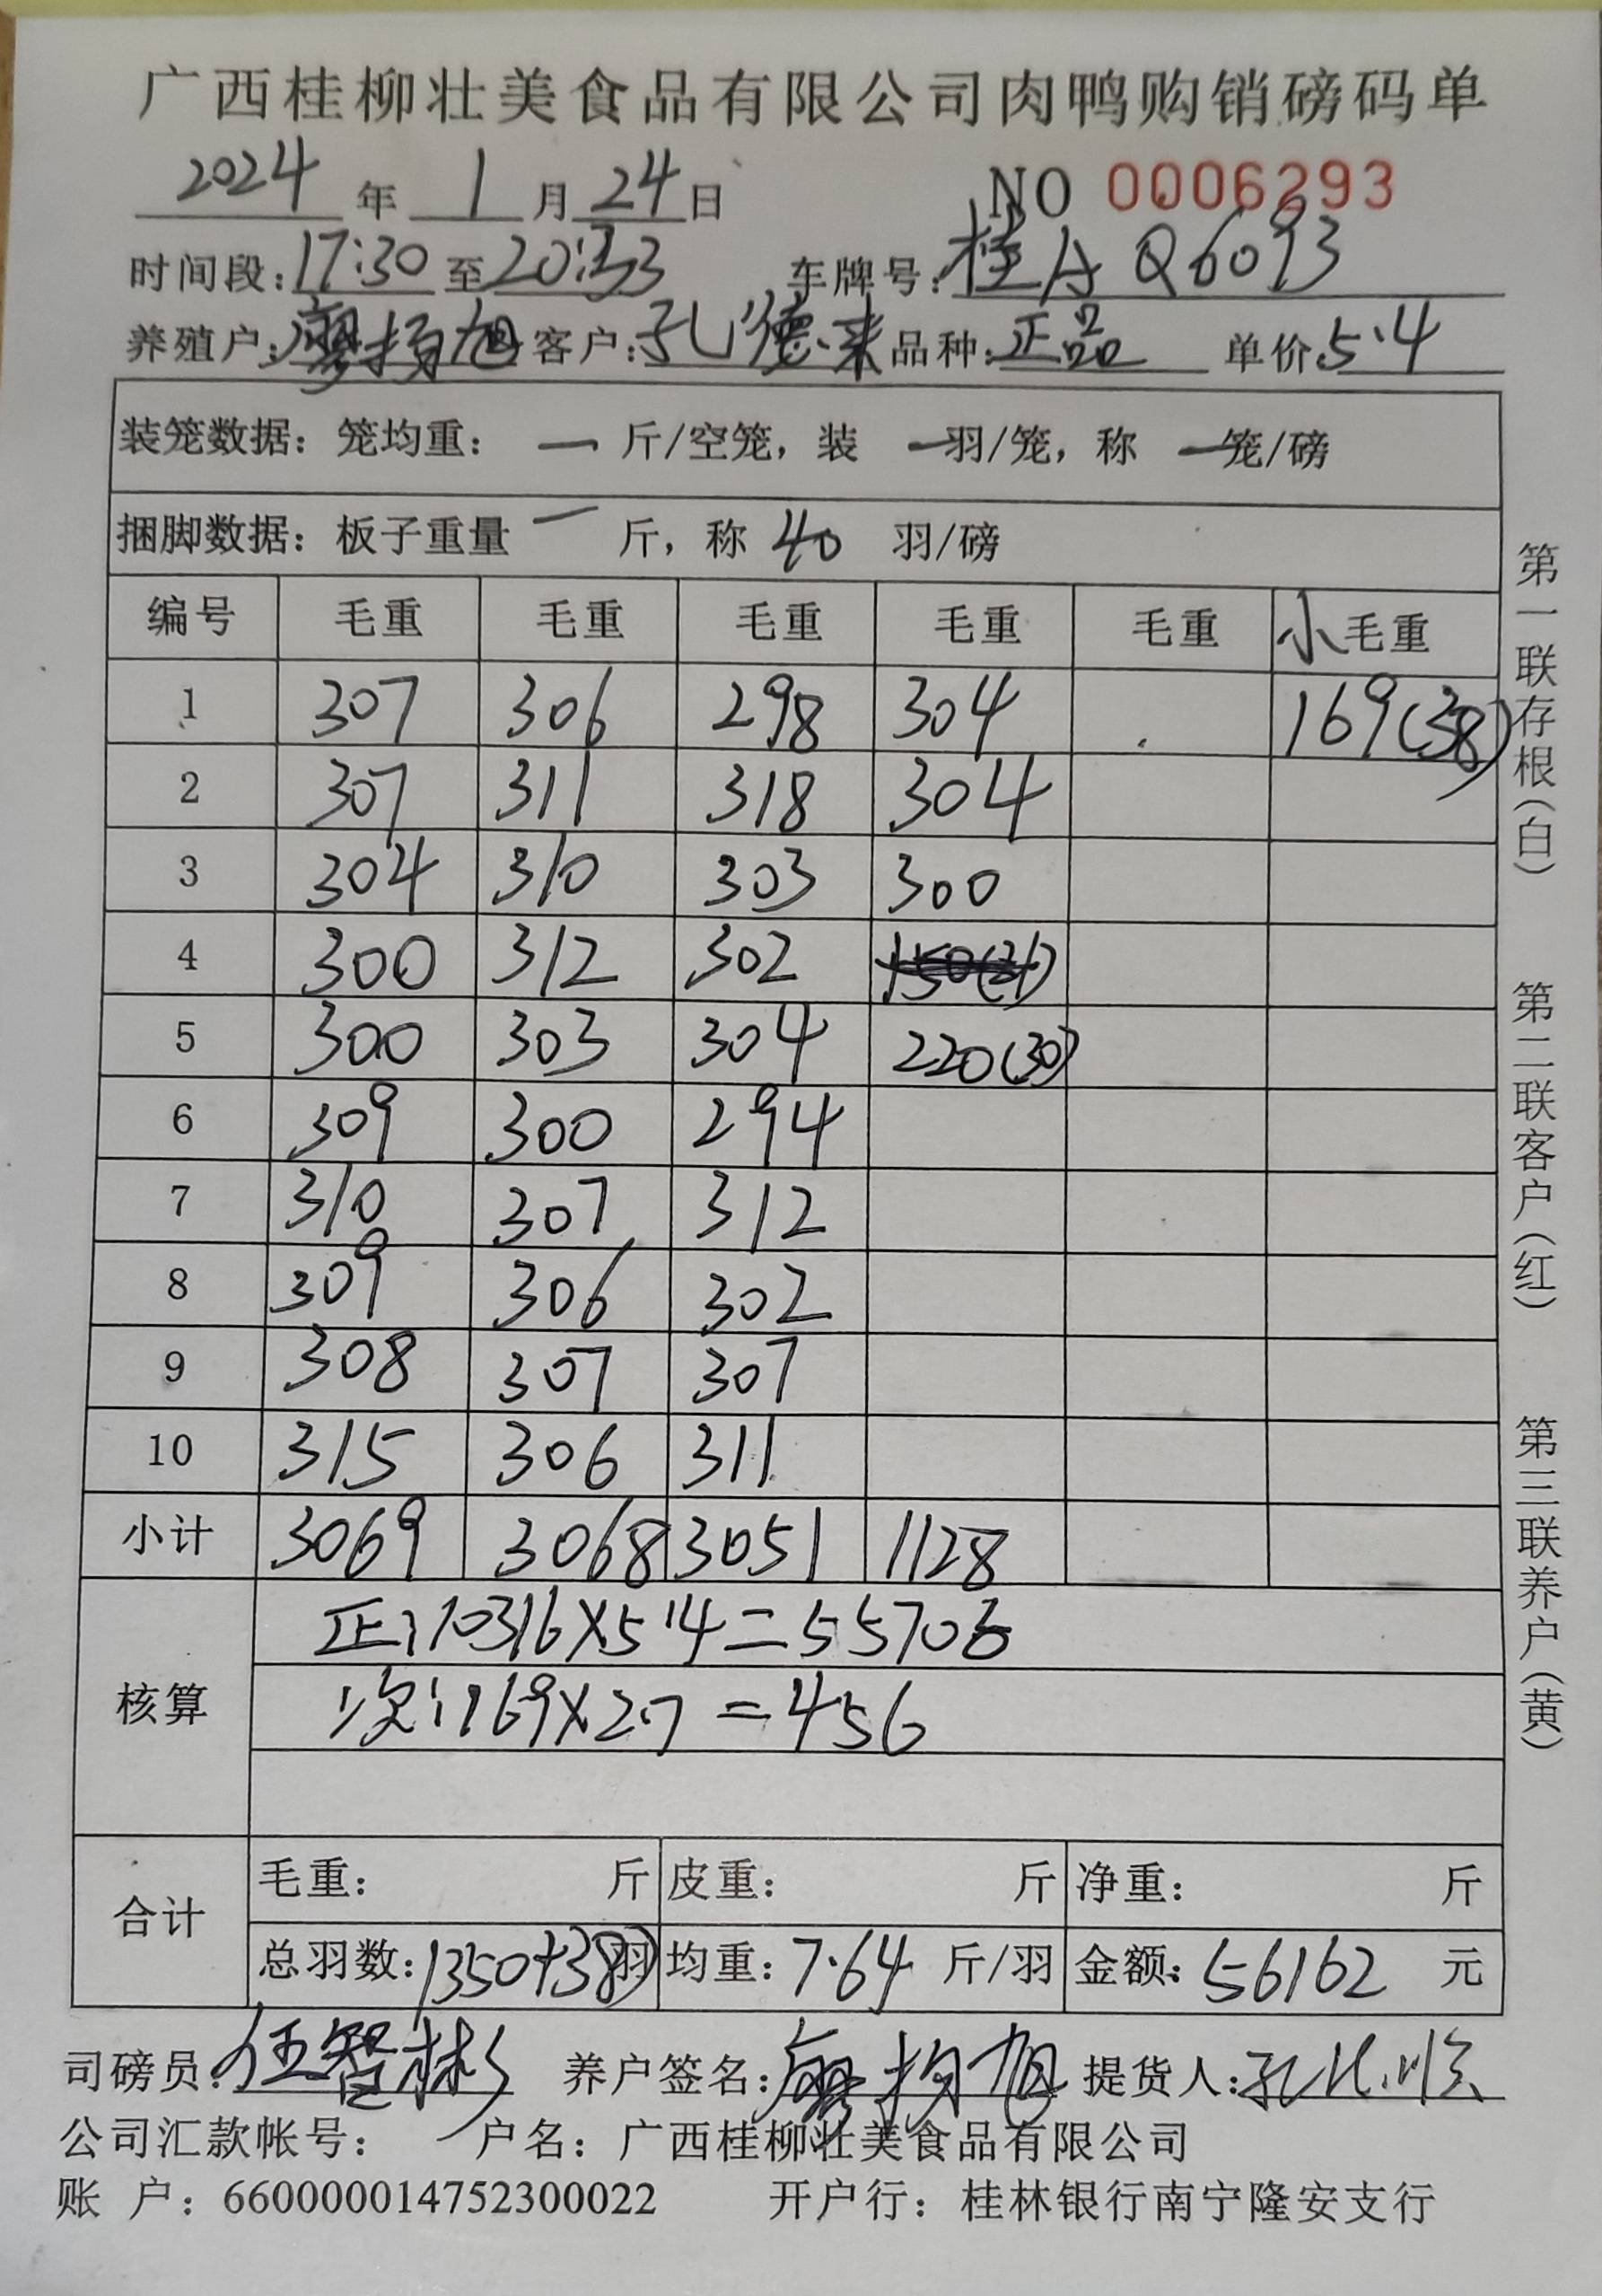 广西桂柳壮美食品有限公司肉鸭购销磅码单
2024 年 1 月 24 日 NO 0006293
时间段:17:30 至 20:33 车牌号:桂A Q6093
养殖户:廖扬旭 客户:孔德来 品种:正品 单价5.4
装笼数据:笼均重: 一 斤/空笼,装 一羽/笼,称 一笼/磅
捆脚数据:板子重量 一 斤,称 40 羽/磅
编号 毛重 毛重 毛重 毛重 毛重 小毛重
1 307 306 298 304 169(38)
2 307 311 318 304
3 304 310 303 300
4 300 312 302 150(21)
5 300 303 304 220(30)
6 309 300 294
7 310 307 312
8 309 306 302
9 308 307 307
10 315 306 311
小计 3069 3068 3051 1128
核算
正:10316×5.4=55706
次:169×2.7=456
合计
毛重: 斤 皮重: 斤 净重: 斤
总羽数:1350+38)羽 均重:7.64 斤/羽 金额:56162 元
司磅员:伍智彬 养户签名:廖扬旭 提货人:孔
公司汇款帐号: 户名:广西桂柳壮美食品有限公司
账 户:660000014752300022 开户行:桂林银行南宁隆安支行
第一联存根(白)
第二联客户(红)
第三联养户(黄)